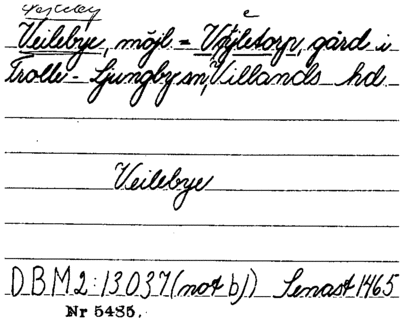 Veilebye, möjl = Vejletorp, gård i
Trolle-Ljungby sn, Villands hd.
Veilebye
DBM 2:13037 (not bj) Senast 1465
Nr 5485.